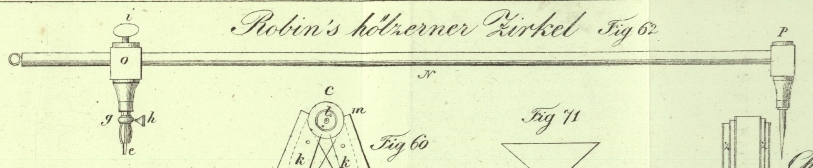 i
Robin's hölzerner Zirkel Fig 62
P
o
N
g h
e
C
l m
Fig 71
Fig 60
k k